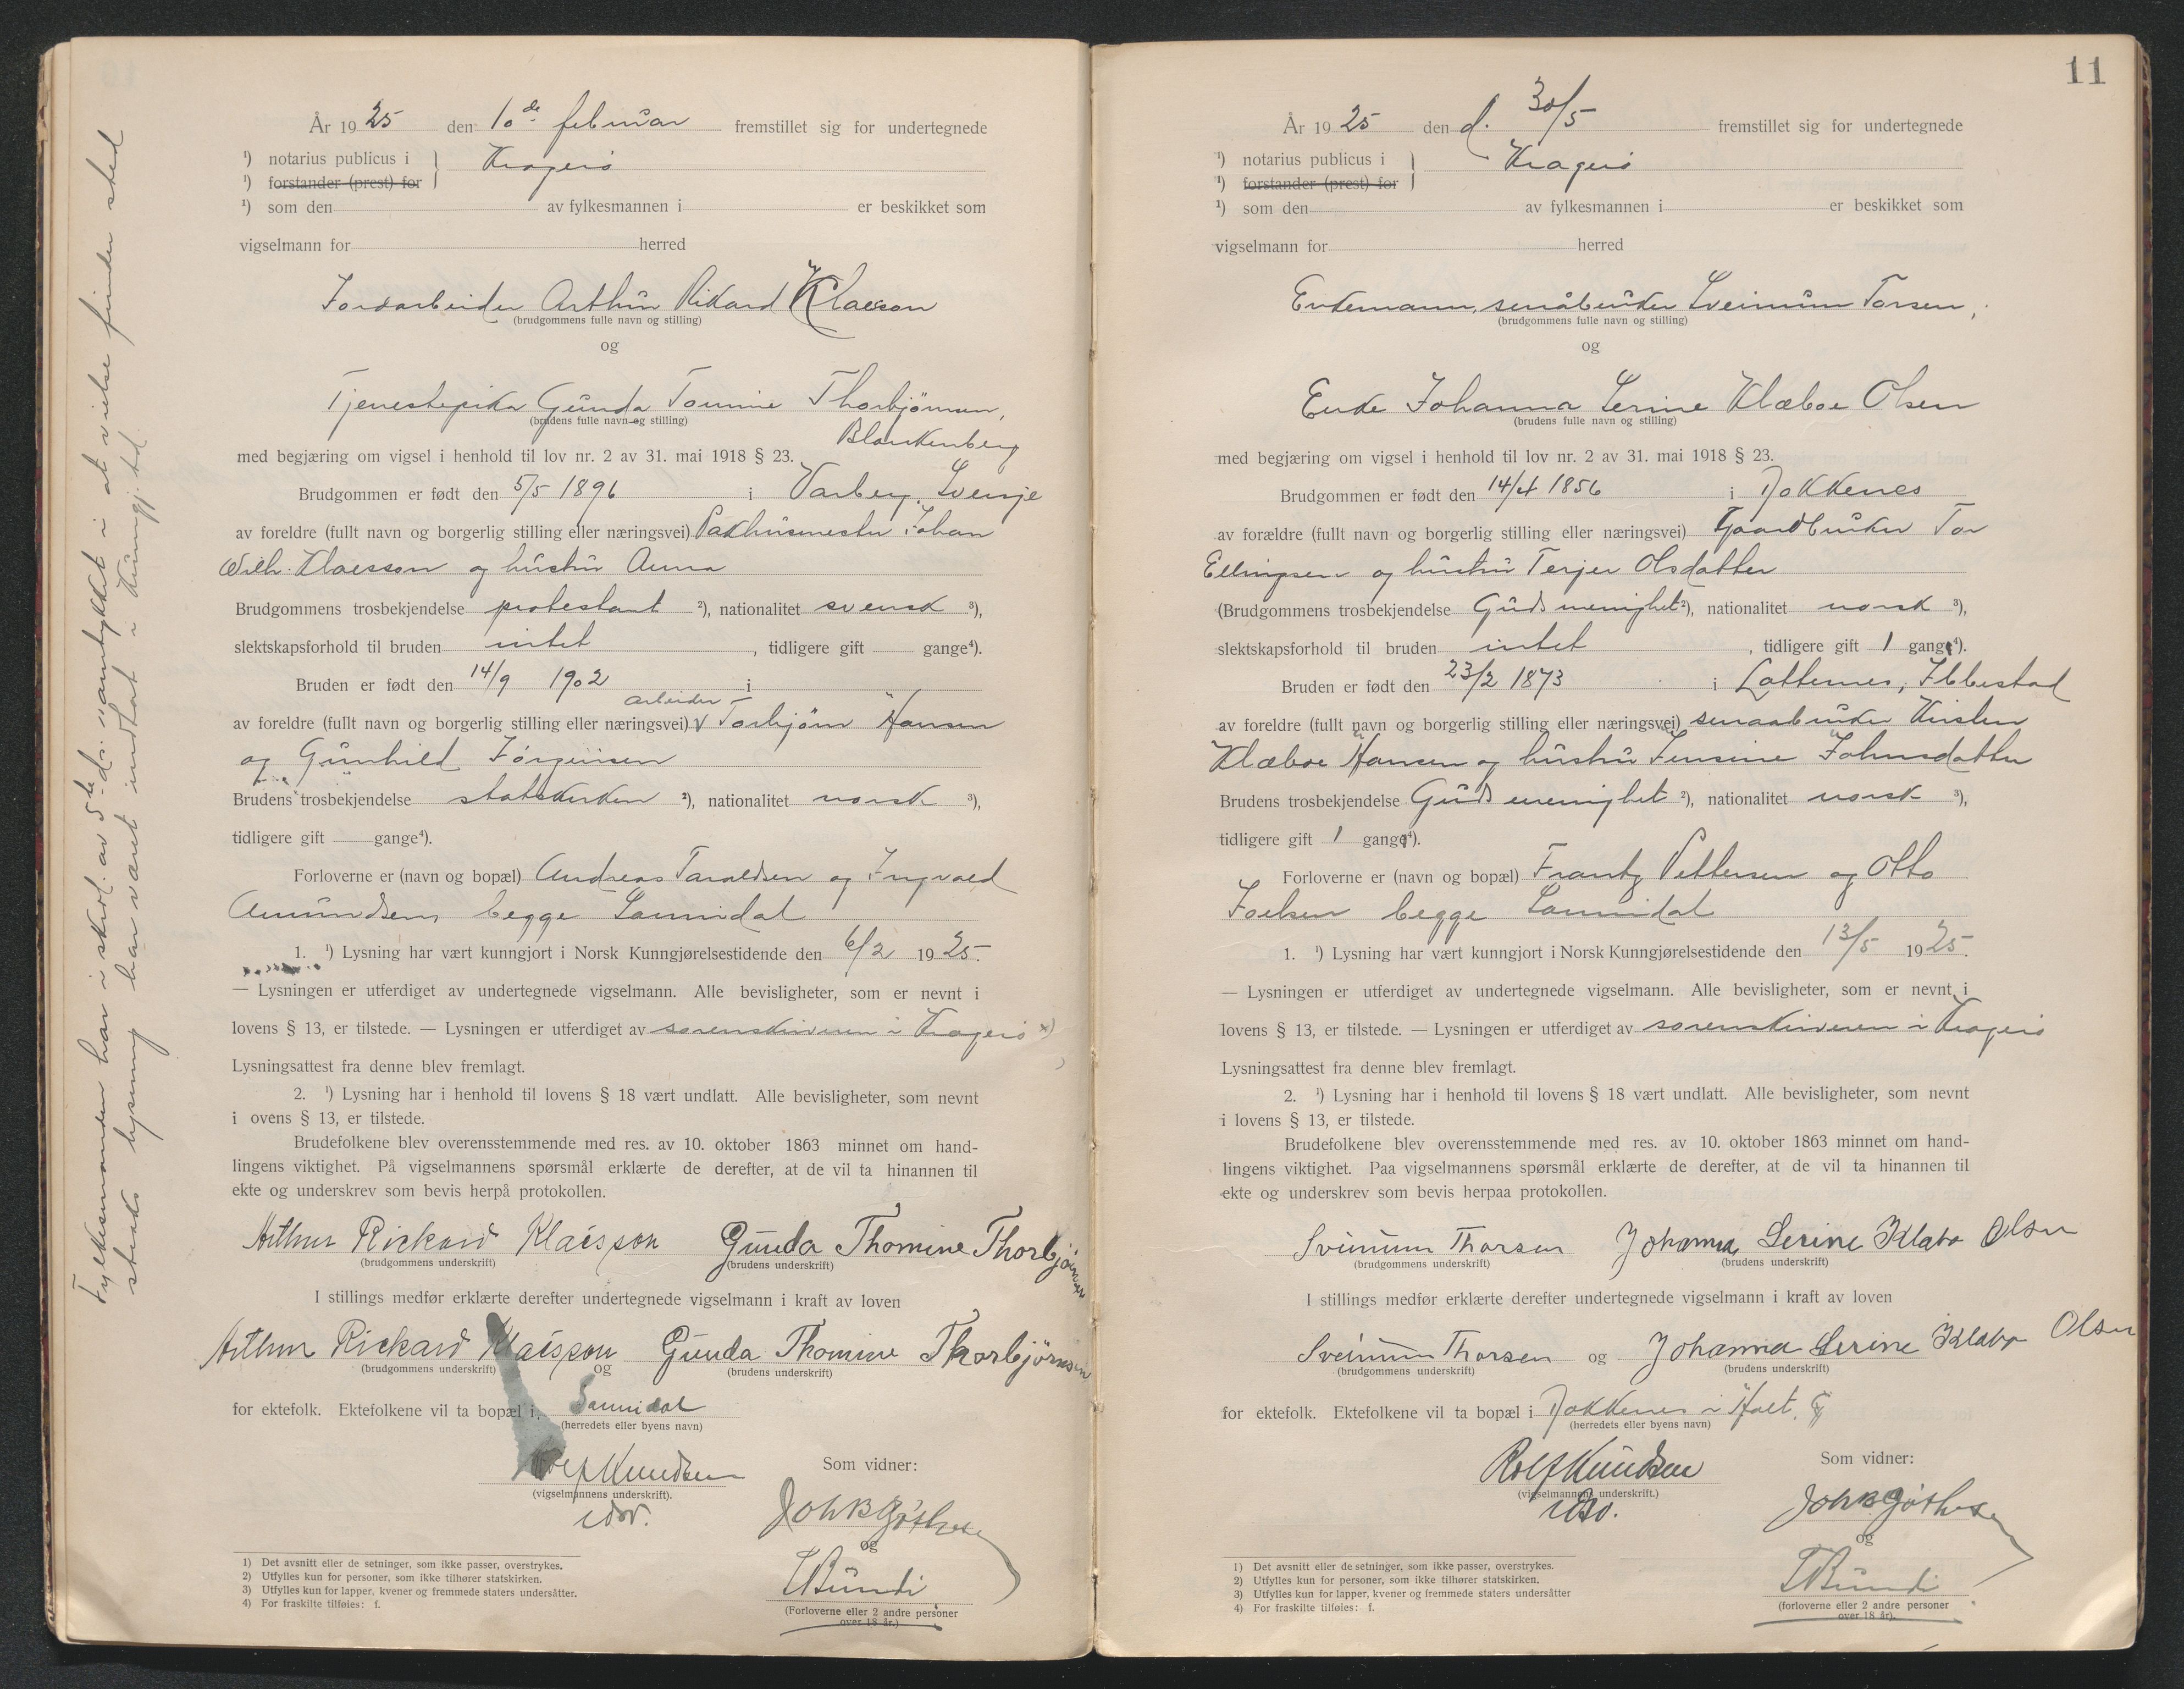 År 1925 den 10de februar fremstillet sig for undertegnede
¹) notarius publicus i } Kragerö
¹) forstander (prest) for
¹) som den av fylkesmannen i er beskikket som
vigselmann for herred
Jordarbeider Arthur Rikard Klaesson
(brudgommens fulle navn og stilling)
og
Tjenestepike Gunda Tomine Thorbjörnsen,
(brudens fulle navn og stilling)
Blankenberg
med begjæring om vigsel i henhold til lov nr. 2 av 31. mai 1918 § 23.
Brudgommen er født den 5/5 1896 i Varberg, Sverige
av foreldre (fullt navn og borgerlig stilling eller næringsvei) Pakhusmester Johan
Wilh. Klaesson og hustru Anna
Brudgommens trosbekjendelse protestant ²), nationalitet svensk ³),
slektskapsforhold til bruden intet , tidligere gift gange⁴).
Bruden er født den 14/9 1902 i
arbeider
av foreldre (fullt navn og borgerlig stilling eller næringsvei) V Torbjörn Hansen
og Gunhild Jörgensen
Brudens trosbekjendelse statskirken ²), nationalitet norsk ³),
tidligere gift gange⁴).
Forloverne er (navn og bopæl) Andreas Taraldsen og Ingvald
Amundsen, begge Sannidal
1. ¹) Lysning har vært kunngjort i Norsk Kunngjørelsestidende den 6/2 1925.
— Lysningen er utferdiget av undertegnede vigselmann. Alle bevisligheter, som er nevnt i
lovens § 13, er tilstede. — Lysningen er utferdiget av sorenskriveren i Kragerö x)
Lysningsattest fra denne blev fremlagt.
2. ¹) Lysning har i henhold til lovens § 18 vært undlatt. Alle bevisligheter, som nevnt
i ovens § 13, er tilstede.
Brudefolkene blev overensstemmende med res. av 10. oktober 1863 minnet om hand-
lingens viktighet. På vigselmannens spørsmål erklærte de derefter, at de vil ta hinannen til
ekte og underskrev som bevis herpå protokollen.
Arthur Rickard Klaesson Gunda Thomine Thorbjörnsen
(brudgommens underskrift) (brudens underskrift)
I stillings medfør erklærte derefter undertegnede vigselmann i kraft av loven
Arthur Rickard Klaesson og Gunda Thomine Thorbjørnsen
(brudgommens underskrift) (brudens underskrift)
for ektefolk. Ektefolkene vil ta bopæl i Sannidal
(herredets eller byens navn)
Rolf Knudsen
(vigselmannens underskrift).
Som vidner:
og
T Bundi
(Forloverne eller 2 andre personer
over 18 år.)
1) Det avsnitt eller de setninger, som ikke passer, overstrykes.
2) Utfylles kun for personer, som ikke tilhører statskirken.
3) Utfylles kun for lapper, kvener og fremmede staters undersåtter.
4) For fraskilte tilføies: f.
Fylkesmanden har i skriv. av 5te ds. samtykket i at vielse finder sted
straks lysning har været indtat i Kunngj.tid.
11
År 1925 den d. 30/5 fremstillet sig for undertegnede
¹) notarius publicus i } Kragerö
¹) forstander (prest) for
¹) som den av fylkesmannen i er beskikket som
vigselmann for herred
Enkemann, småbruker Sveinum Torsen,
(brudgommens fulle navn og stilling)
og
Enke Johanna Serine Klæboe Olsen
(brudens fulle navn og stilling)
med begjæring om vigsel i henhold til lov nr. 2 av 31. mai 1918 § 23.
Brudgommen er født den 14/4 1856 i Dokkenes
av forældre (fullt navn og borgerlig stilling eller næringsvei) Gaardbruker Tor
Ellingsen og hustru Terjer Olsdatter
(Brudgommens trosbekjendelse Guds menighet ²), nationalitet norsk ³),
slektskapsforhold til bruden intet , tidligere gift 1 gang⁴).
Bruden er født den 23/2 1873 i Lotternes, Ibbestad
av foreldre (fullt navn og borgerlig stilling eller næringsvei) smaabruker Kirsten
Klæboe Hansen og hustru Jensine Johnsdatter
Brudens trosbekjendelse Guds menighet ²), nationalitet norsk ³),
tidligere gift 1 gang⁴).
Forloverne er (navn og bopæl) Frantz Pettersen og Otto
Joelsen begge Sannidal
1. ¹) Lysning har vært kunngjort i Norsk Kunngjørelsestidende den 13/5 1925.
— Lysningen er utferdiget av undertegnede vigselmann. Alle bevisligheter, som er nevnt i
lovens § 13, er tilstede. — Lysningen er utferdiget av sorenskriveren i Kragerö
Lysningsattest fra denne blev fremlagt.
2. ¹) Lysning har i henhold til lovens § 18 vært undlatt. Alle bevisligheter, som nevnt
i lovens § 13, er tilstede.
Brudefolkene blev overensstemmende med res. av 10. oktober 1863 minnet om hand-
lingens viktighet. Paa vigselmannens spørsmål erklærte de derefter, at de vil ta hinannen til
ekte og underskrev som bevis herpaa protokollen.
Sveinum Thorsen Johanna Serine Klabo Olsen
(brudgommens underskrift) (brudens underskrift)
I stillings medfør erklærte derefter undertegnede vigselmann i kraft av loven
Sveinum Thorsen og Johanna Serine Klabo Olsen
(brudgommens underskrift) (brudens underskrift)
for ektefolk. Ektefolkene vil ta bopæl i Dokkenes i Holt.
(herredets eller byens navn)
Rolf Knudsen
(vigselmannens underskrift.)
Som vidner:
og
T Bundi
(forloverne eller 2 andre personer
over 18 år).
1) Det avsnitt eller de setninger, som ikke passer, overstrykes.
2) Utfylles kun for personer, som ikke tilhører statskirken.
3) Utfylles kun for lapper, kvener og fremmede staters undersåtter
4) For fraskilte tilføies: f.